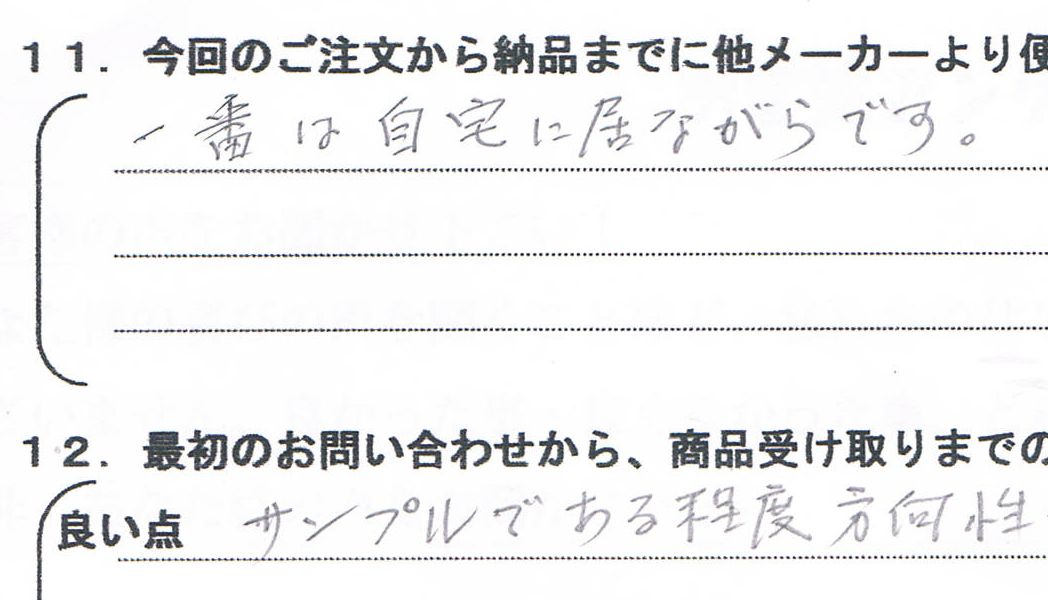 11. 今回のご注文から納品までに他メーカーより便
一番は自宅に居ながらです。
12. 最初のお問い合わせから、商品受け取りまでの
良い点 サンプルである程度方向性